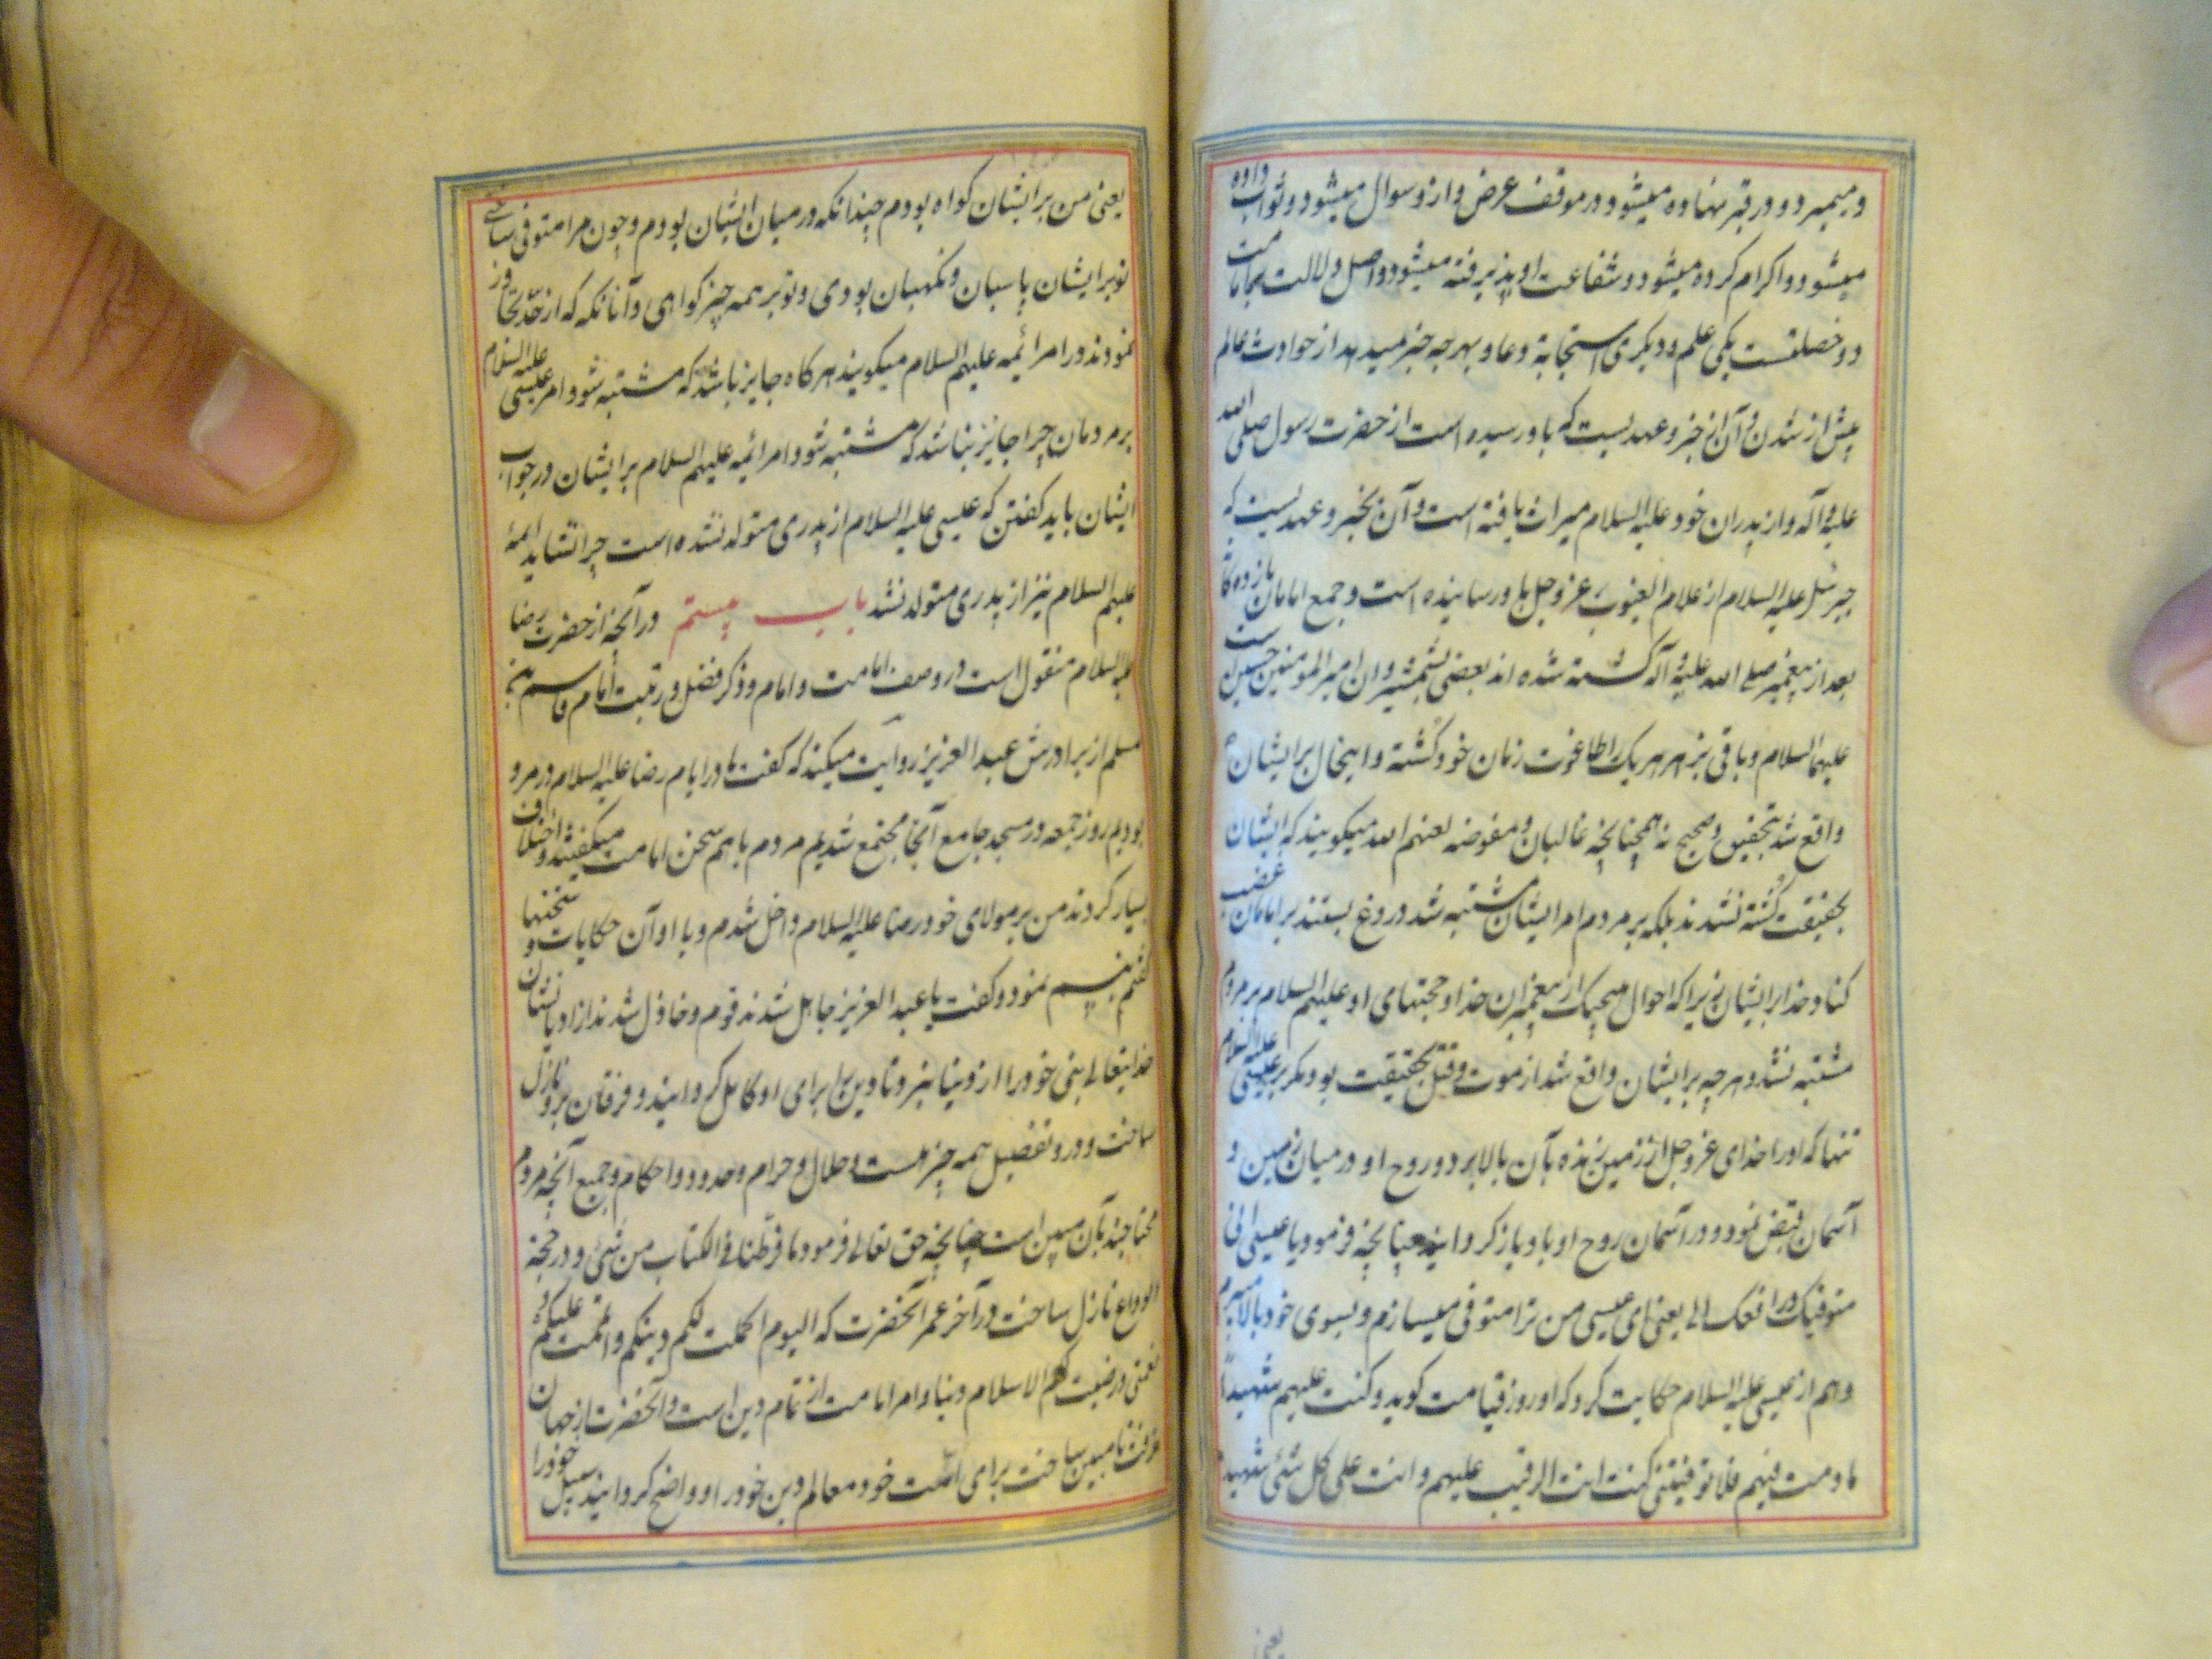 و میمیرد و در قبر نهاده میشود و در موقف عرض و ازو سوال میشود و ثواب داده
میشود و اکرام کرده میشود و شفاعت او پذیرفته میشود و اصل دلالت بر امامت
دو خصلتست یکی علم و دیگری استجابة دعا و بهرچه خبر میدهد از حوادث عالم
پیش از شدن و آن خبر و عهدیست که باو رسیده است از حضرت رسول صلی الله
علیه و آله و از پدران خود علیه السلام میراث یافته است و آن خبر و عهدیست که
جبرئیل علیه السلام از علام الغیوب عز و جل باو رسانیده است و جمیع امامان یازده گانه
بعد از پیغمبر صلی الله علیه و آله کشته شده اند بعضی بشمشیر و آن امیر المومنین و حسین است
علیهما السلام و باقی بزهر هر یک را طاغوت زمان خود کشته و اینحال بر ایشان
واقع شد بتحقیق و صحیح نه همچنانچه غالیان و مفوضه لعنهم الله میکویند که ایشان
بحقیقت کشته نشدند بلکه بر مردم امر ایشان مشتبه شد دروغ بستند بر امامان غضب
کناد خدا بر ایشان زیرا که احوال هیچیک از پیغمبران خدا و حجتهای او علیهم السلام بر مردم
مشتبه نشد و هرچه بر ایشان واقع شد از موت و قتل بحقیقت بود مکر بر عیسی علیه السلام
تنها که او را خدای عز و جل از زمین زنده بآن بالا برد و روح او در میان زمین و
آسمان قبض نمود و در آسمان روح او باو باز کردانید چنانچه فرمود یا عیسی انی
متوفیک و رافعک الی یعنی ای عیسی من ترا متوفی میسازم و بسوی خود بالا میبرم
و هم از عیسی علیه السلام حکایت کرد که او روز قیامت کوید و کنت علیهم شهیدا
ما دمت فیهم فلما توفیتنی کنت انت الرقیب علیهم و انت علی کل شئ شهید
یعنی
یعنی من بر ایشان کواه بودم چندانکه در میان ایشان بودم و چون مرا متوفی ساختی
تو بر ایشان پاسبان و نکهبان بودی و تو بر همه چیز کواهی و آنانکه که از حد تجاوز
نمودند در امر ائمه علیهم السلام میکویند هرکاه جایز باشد که مشتبه شود امر عیسی علیه السلام
بر مردمان چرا جایز نباشد که مشتبه شود امر ائمه علیهم السلام بر ایشان در جواب
ایشان باید کفتن که عیسی علیه السلام از پدری متولد نشده است چرا نشاید ائمه
علیهم السلام نیز از پدری متولد نشد باب بیستم در آنچه از حضرت رضا
علیه السلام منقول است در وصف امامت و امام و ذکر فضل و رتبت امام قاسم بن
مسلم از برادرش عبد العزیز روایت میکند که گفت ما در ایام رضا علیه السلام در مرو
بودیم روز جمعه در مسجد جامع آنجا مجتمع شدیم مردم با هم سخن امامت میکفتند و اختلاف
بسیار کردند من بر مولای خود رضا علیه السلام داخل شدم و با او آن حکایات و سخنها
کفتم تبسم نمود و کفت یا عبد العزیز جاهل شدند قوم و غافل شدند از ادیانشان
خدایتعالی نبی خود را از دنیا نبرد تا دین را برای او کامل کردانید و فرقان برو نازل
ساخت و درو تفصیل همه چیز هست و حلال و حرام و حدود و احکام و جمیع آنچه مردم
محتاجند بآن مبین است چنانچه حق تعالی فرمود ما فرطنا فی الکتاب من شئ و در حجة
الوداع نازل ساخت در آخر عمر آنحضرت که الیوم اکملت لکم دینکم و اتممت علیکم
نعمتی و رضیت لکم الاسلام دینا و امر امامت از تمام دین است و آنحضرت از جهان
نرفت تا مبین ساخت برای امت خود معالم دین خود را و واضح کردانید سبیل خود را